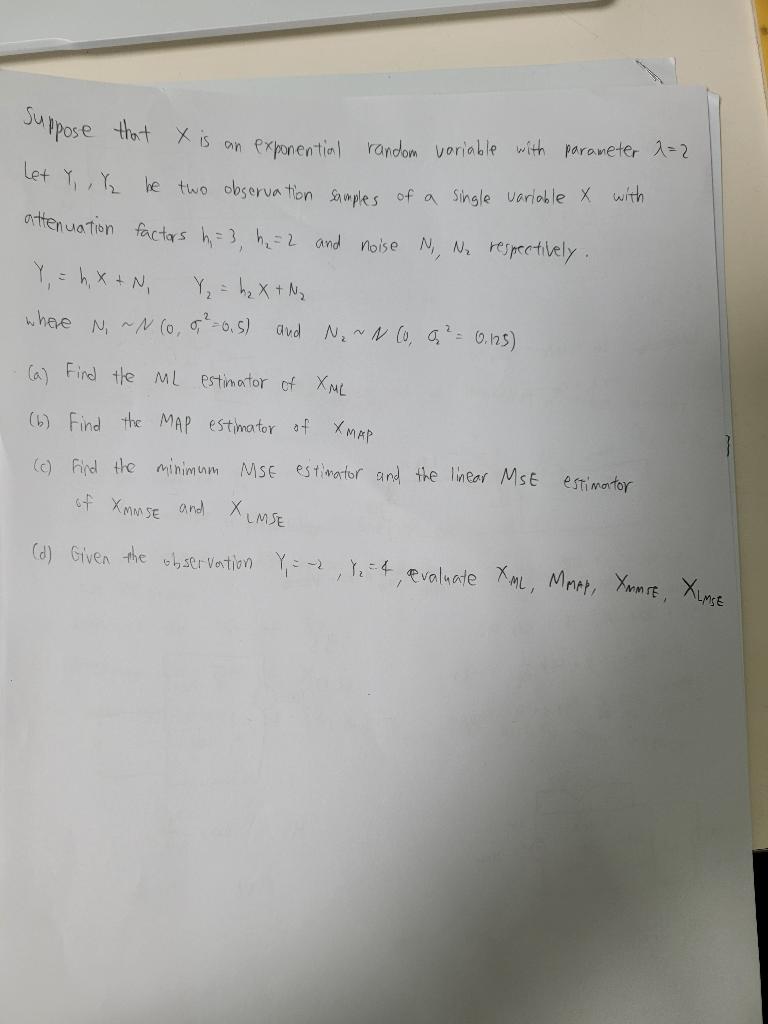 Suppose that X is an exponential random variable with parameter λ=2
Let Y₁, Y₂ be two observation samples of a single variable X with
attenuation factors h₁=3, h₂=2 and noise N₁, N₂ respectively.
Y₁ = h₁X + N₁ Y₂ = h₂X + N₂
where N₁ ~ N(0, σ₁²=0.5) and N₂ ~ N(0, σ₂²=0.125)
(a) Find the ML estimator of X_ML
(b) Find the MAP estimator of X_MAP
(c) Find the minimum MSE estimator and the linear MSE estimator
of X_MMSE and X_LMSE
(d) Given the observation Y₁=-2, Y₂=4, evaluate X_ML, M_MAP, X_MMSE, X_LMSE